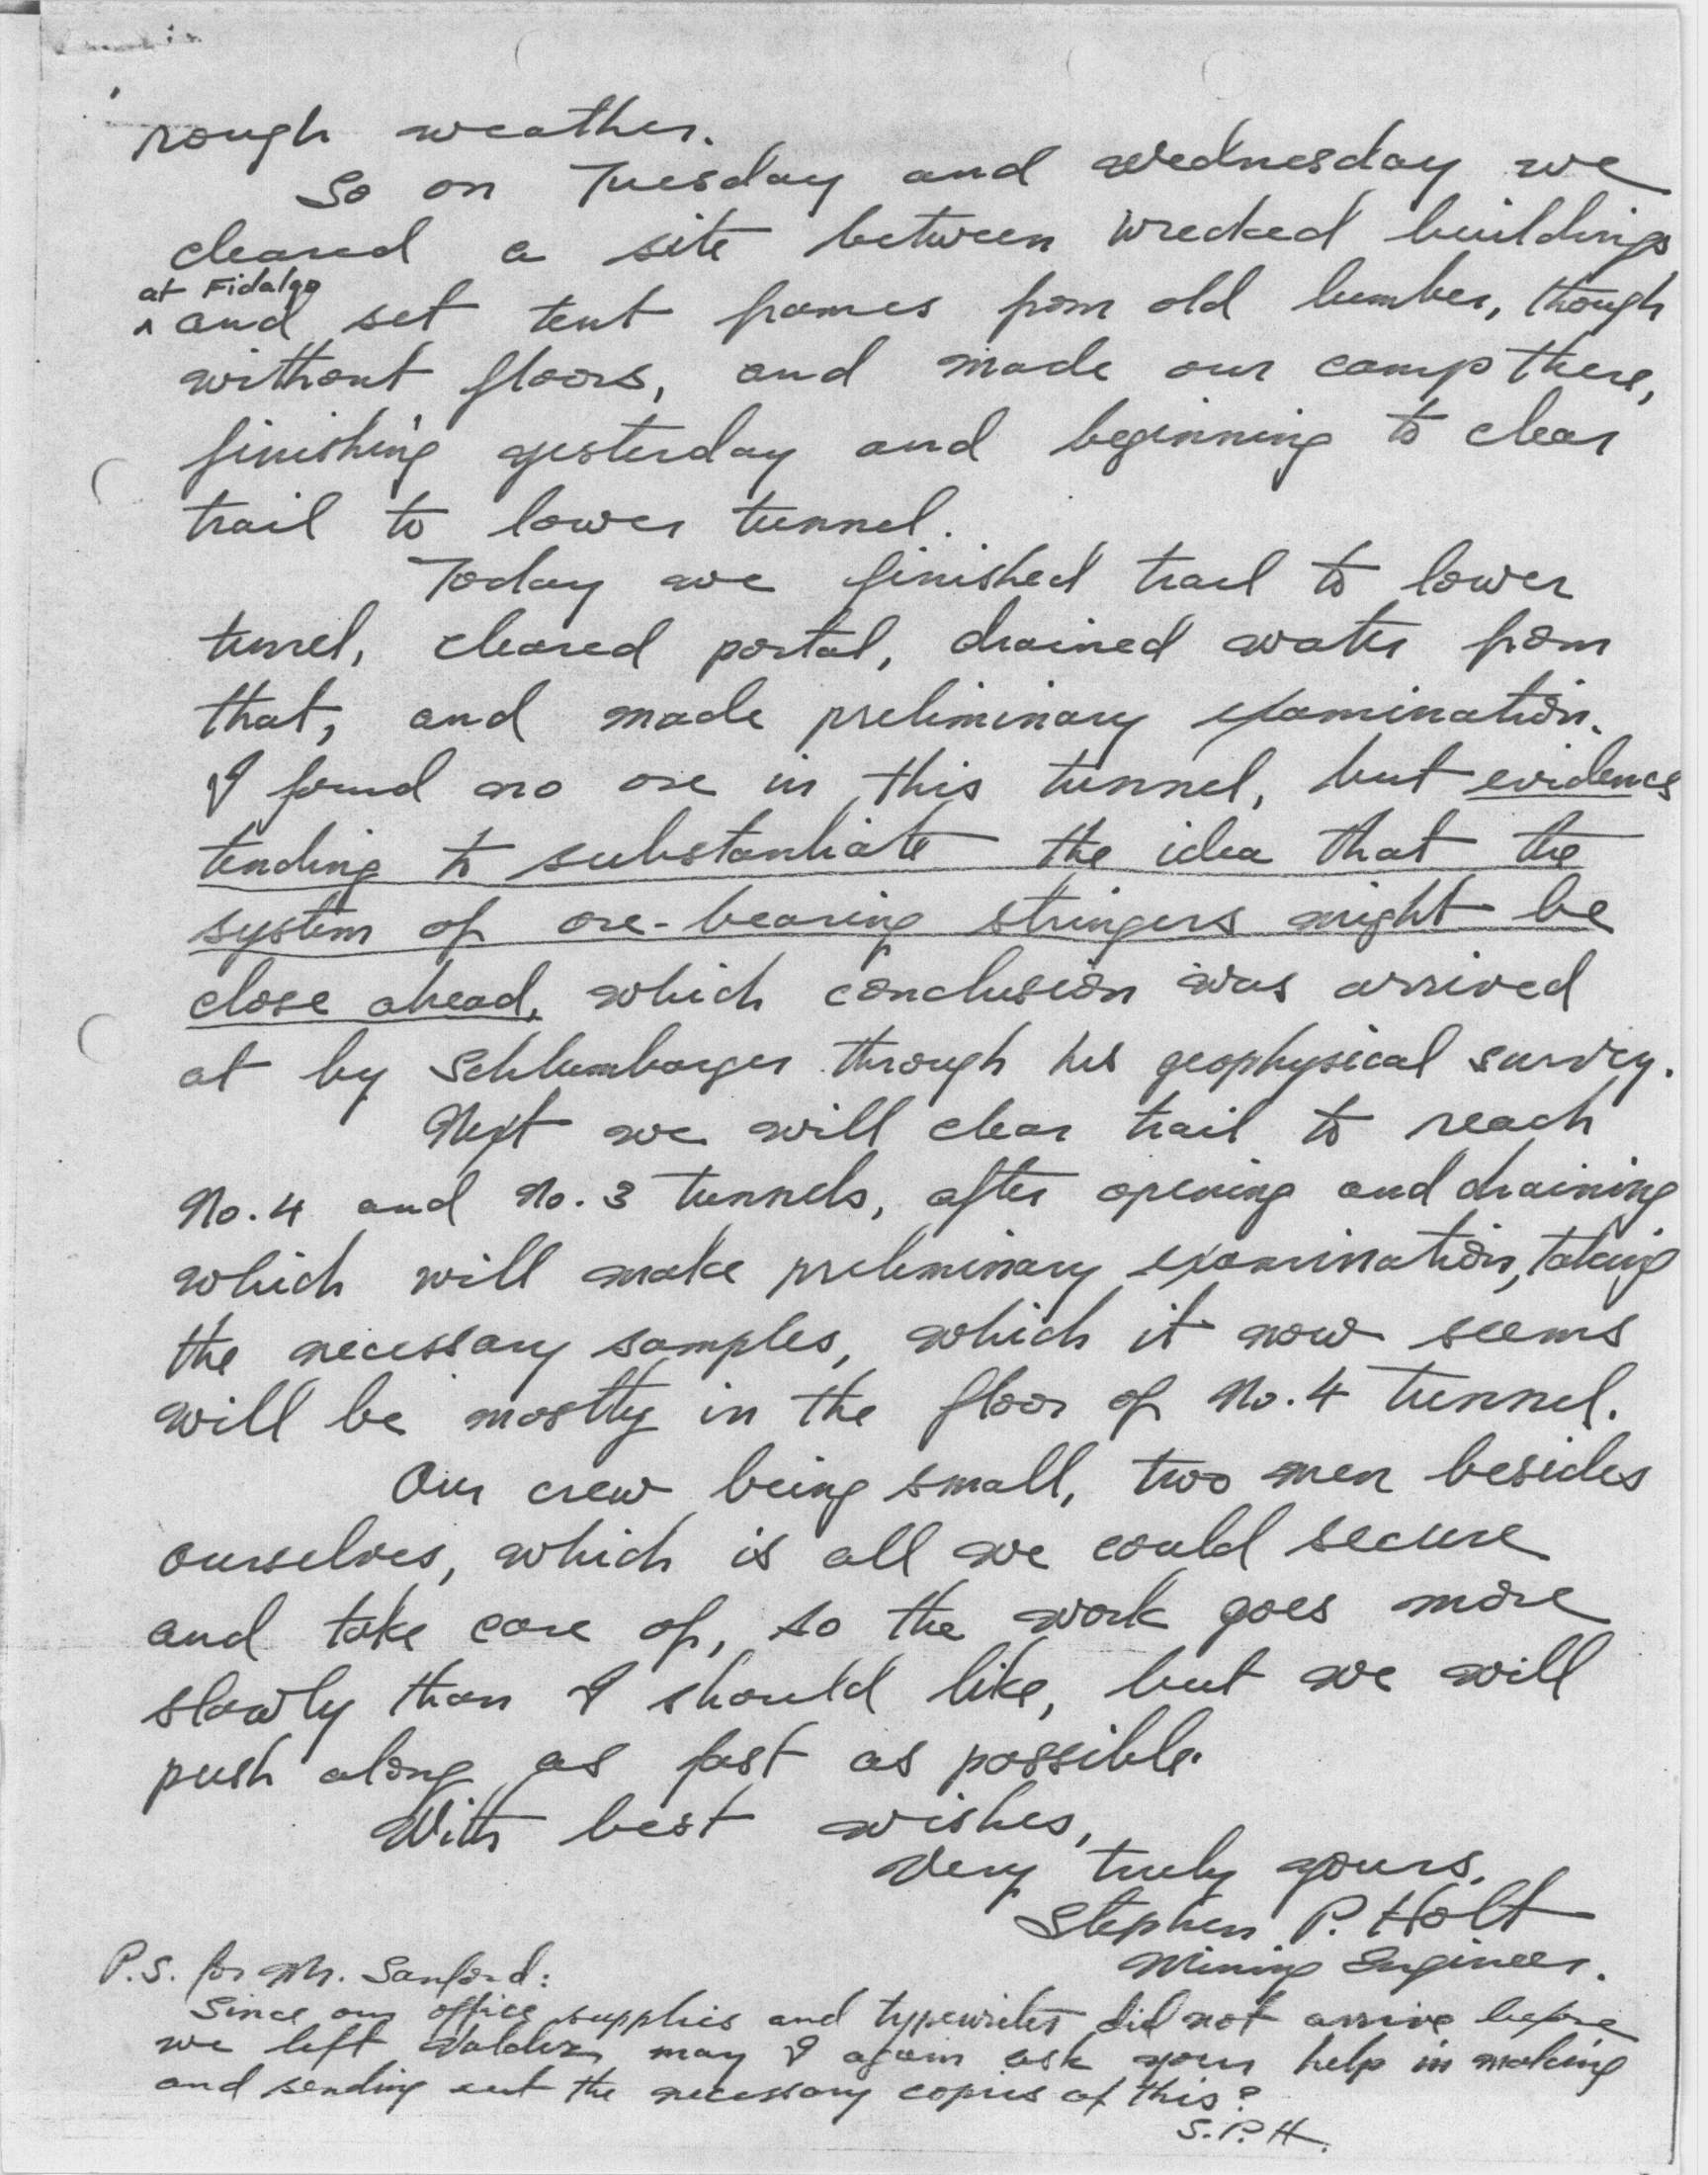 rough weather.
So on Tuesday and Wednesday we
cleared a site between wrecked buildings
at Fidalgo
^ and set tent frames from old lumber, though
without floors, and made our camp there,
finishing yesterday and beginning to clear
trail to lower tunnel.
Today we finished trail to lower
tunnel, cleared portal, drained water from
that, and made preliminary examination.
I found no ore in this tunnel, but evidence
tending to substantiate the idea that the
system of ore-bearing stringers might be
close ahead, which conclusion was arrived
at by Schlumbarger through his geophysical survey.
Next we will clear trail to reach
No. 4 and No. 3 tunnels, after opening and draining
which will make preliminary examination, taking
the necessary samples, which it now seems
will be mostly in the floor of No. 4 tunnel.
Our crew being small, two men besides
ourselves, which is all we could secure
and take care of, so the work goes more
slowly than I should like, but we will
push along as fast as possible.
With best wishes,
Very truly yours,
Stephen P. Holt
Mining Engineer.
P.S. for Mr. Sanford:
Since our office supplies and typewriter did not arrive before
we left Valdez, may I again ask your help in making
and sending out the necessary copies of this?
S.P.H.